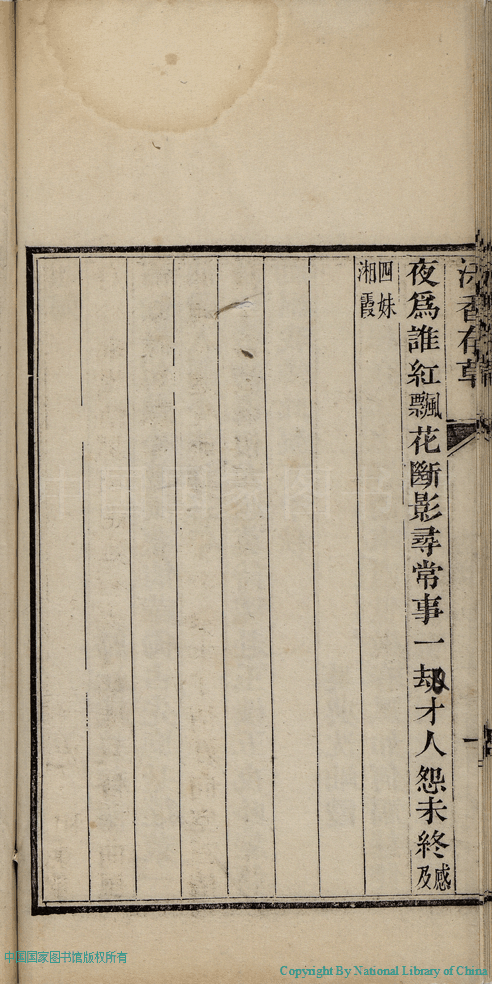 夜爲誰紅飄花斷影尋常事一刼才人怨未終感及
四妹湘霞
一
中国国家图书馆版权所有
Copyright By National Library of China